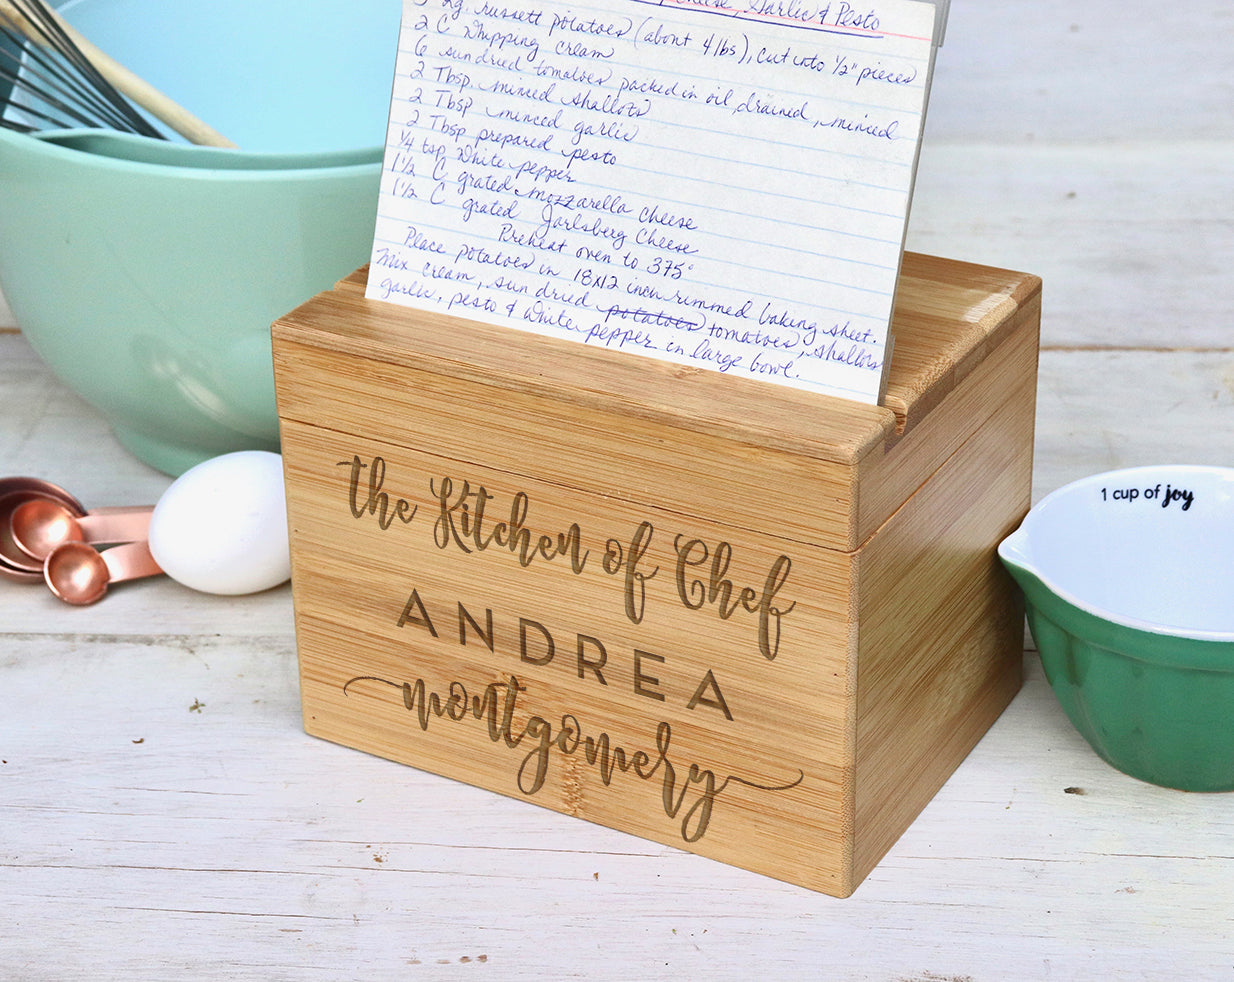 Cheese, Garlic & Pesto
lg. russett potatoes (about 4 lbs), cut into 1/2" pieces
2 C Whipping cream
6 sun dried tomatoes packed in oil, drained, minced
2 Tbsp. minced shallots
2 Tbsp minced garlic
2 Tbsp prepared pesto
1/4 tsp White pepper
1 1/2 C grated mozzarella cheese
1 1/2 C grated Jarlsberg Cheese
Preheat oven to 375°
Place potatoes in 18x12 inch rimmed baking sheet.
Mix cream, sun dried potatoes tomatoes, shallots
garlic, pesto & white pepper in large bowl.
the Kitchen of Chef
ANDREA
montgomery
1 cup of joy